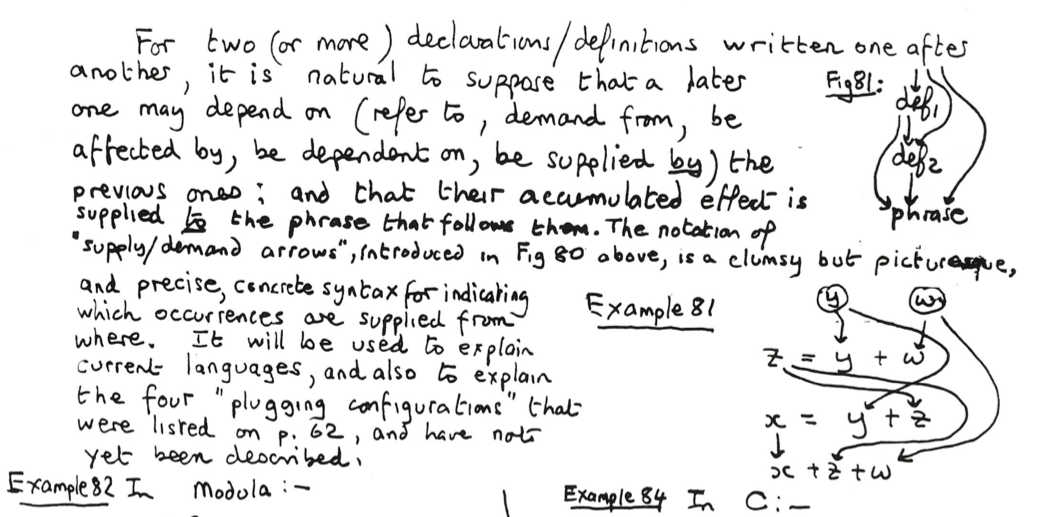 For two (or more) declarations/definitions written one after
another, it is natural to suppose that a later
one may depend on (refer to, demand from, be
affected by, be dependent on, be supplied by) the
previous ones; and that their accumulated effect is
supplied to the phrase that follows them. The notation of
"supply/demand arrows", introduced in Fig 80 above, is a clumsy but picturesque,
and precise, concrete syntax for indicating
which occurrences are supplied from
where. It will be used to explain
current languages, and also to explain
the four "plugging configurations" that
were listed on p. 62, and have not
yet been described.
Fig 81:
def1
def2
phrase
Example 81
y w
z = y + w
x = y + z
x + z + w
Example 82 In Modula :-
Example 84 In C :-